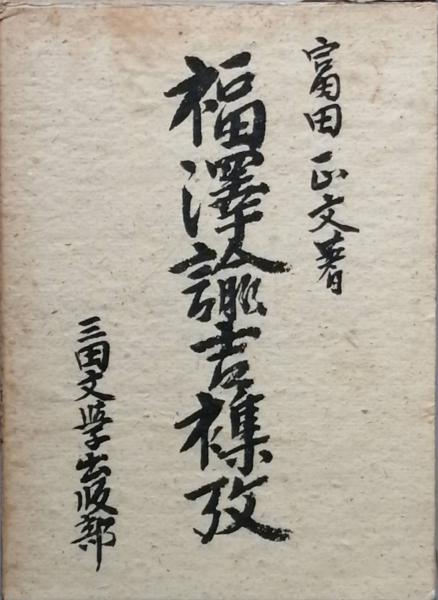 富田正文著
福澤諭吉襍攷
三田文学出版部